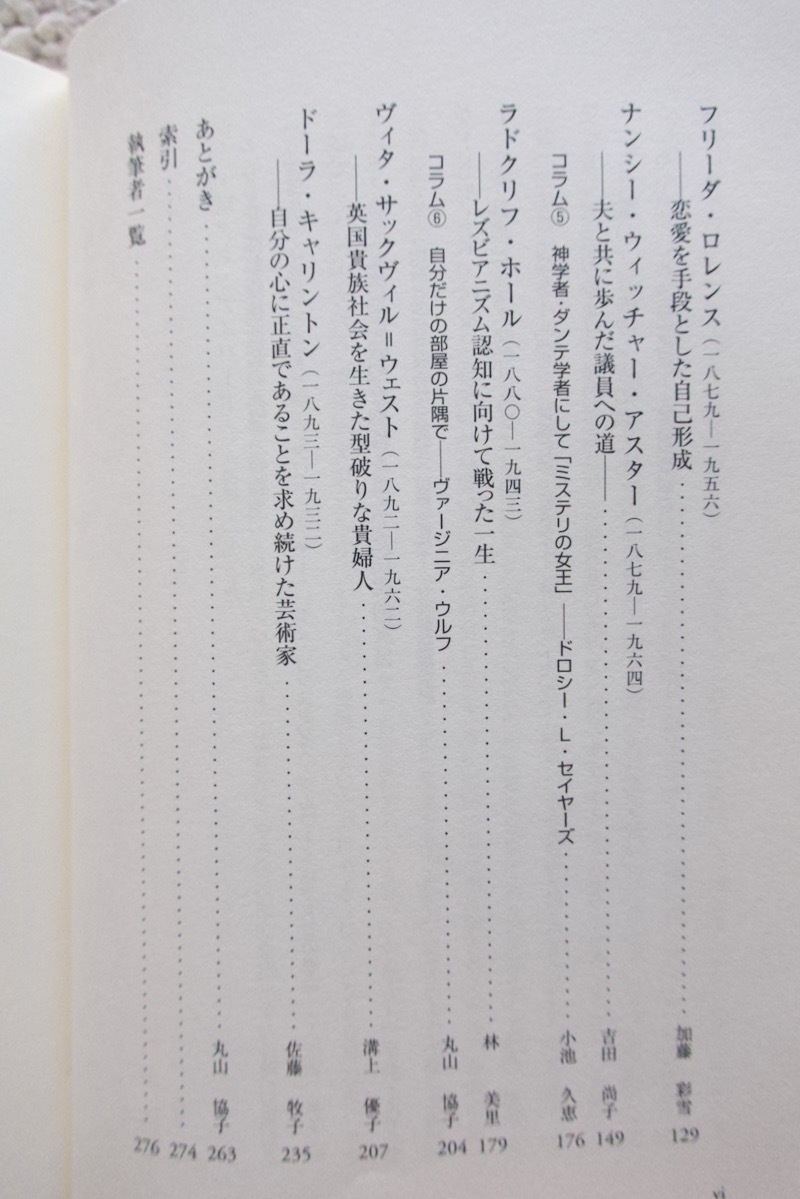 フリーダ・ロレンス(一八七九―一九五六)
――恋愛を手段とした自己形成‥‥‥‥‥‥‥‥‥‥加藤 彩雪 129
ナンシー・ウィッチャー・アスター(一八七九―一九六四)
――夫と共に歩んだ議員への道――‥‥‥‥‥‥‥‥‥‥吉田 尚子 149
コラム⑤ 神学者・ダンテ学者にして「ミステリの女王」――ドロシー・L・セイヤーズ‥‥‥‥小池 久恵 176
ラドクリフ・ホール(一八八〇―一九四三)
――レズビアニズム認知に向けて戦った一生‥‥‥‥‥‥‥‥林 美里 179
コラム⑥ 自分だけの部屋の片隅で――ヴァージニア・ウルフ‥‥‥‥‥‥‥‥丸山 協子 204
ヴィタ・サックヴィル=ウェスト(一八九二―一九六二)
――英国貴族社会を生きた型破りな貴婦人‥‥‥‥‥‥‥‥溝上 優子 207
ドーラ・キャリントン(一八九三―一九三二)
――自分の心に正直であることを求め続けた芸術家‥‥‥‥‥‥佐藤 牧子 235
あとがき‥‥‥‥‥‥‥‥‥‥‥‥‥‥丸山 協子 263
索引‥‥‥‥‥‥‥‥‥‥‥‥‥‥‥‥274
執筆者一覧‥‥‥‥‥‥‥‥‥‥‥‥‥‥276
vi